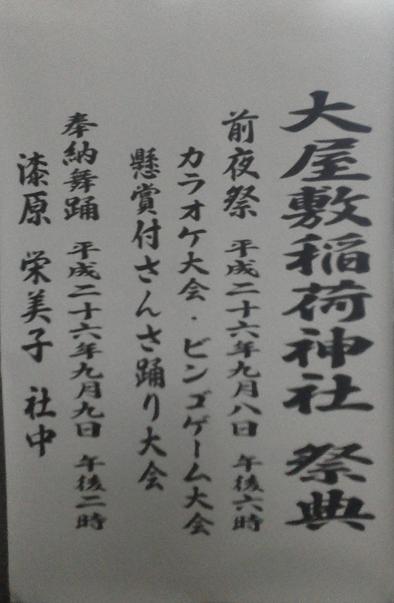 大屋敷稲荷神社 祭典
前夜祭 平成二十六年九月八日 午後六時
カラオケ大会・ビンゴゲーム大会
懸賞付さんさ踊り大会
奉納舞踊 平成二十六年九月九日 午後二時
漆原 栄美子 社中